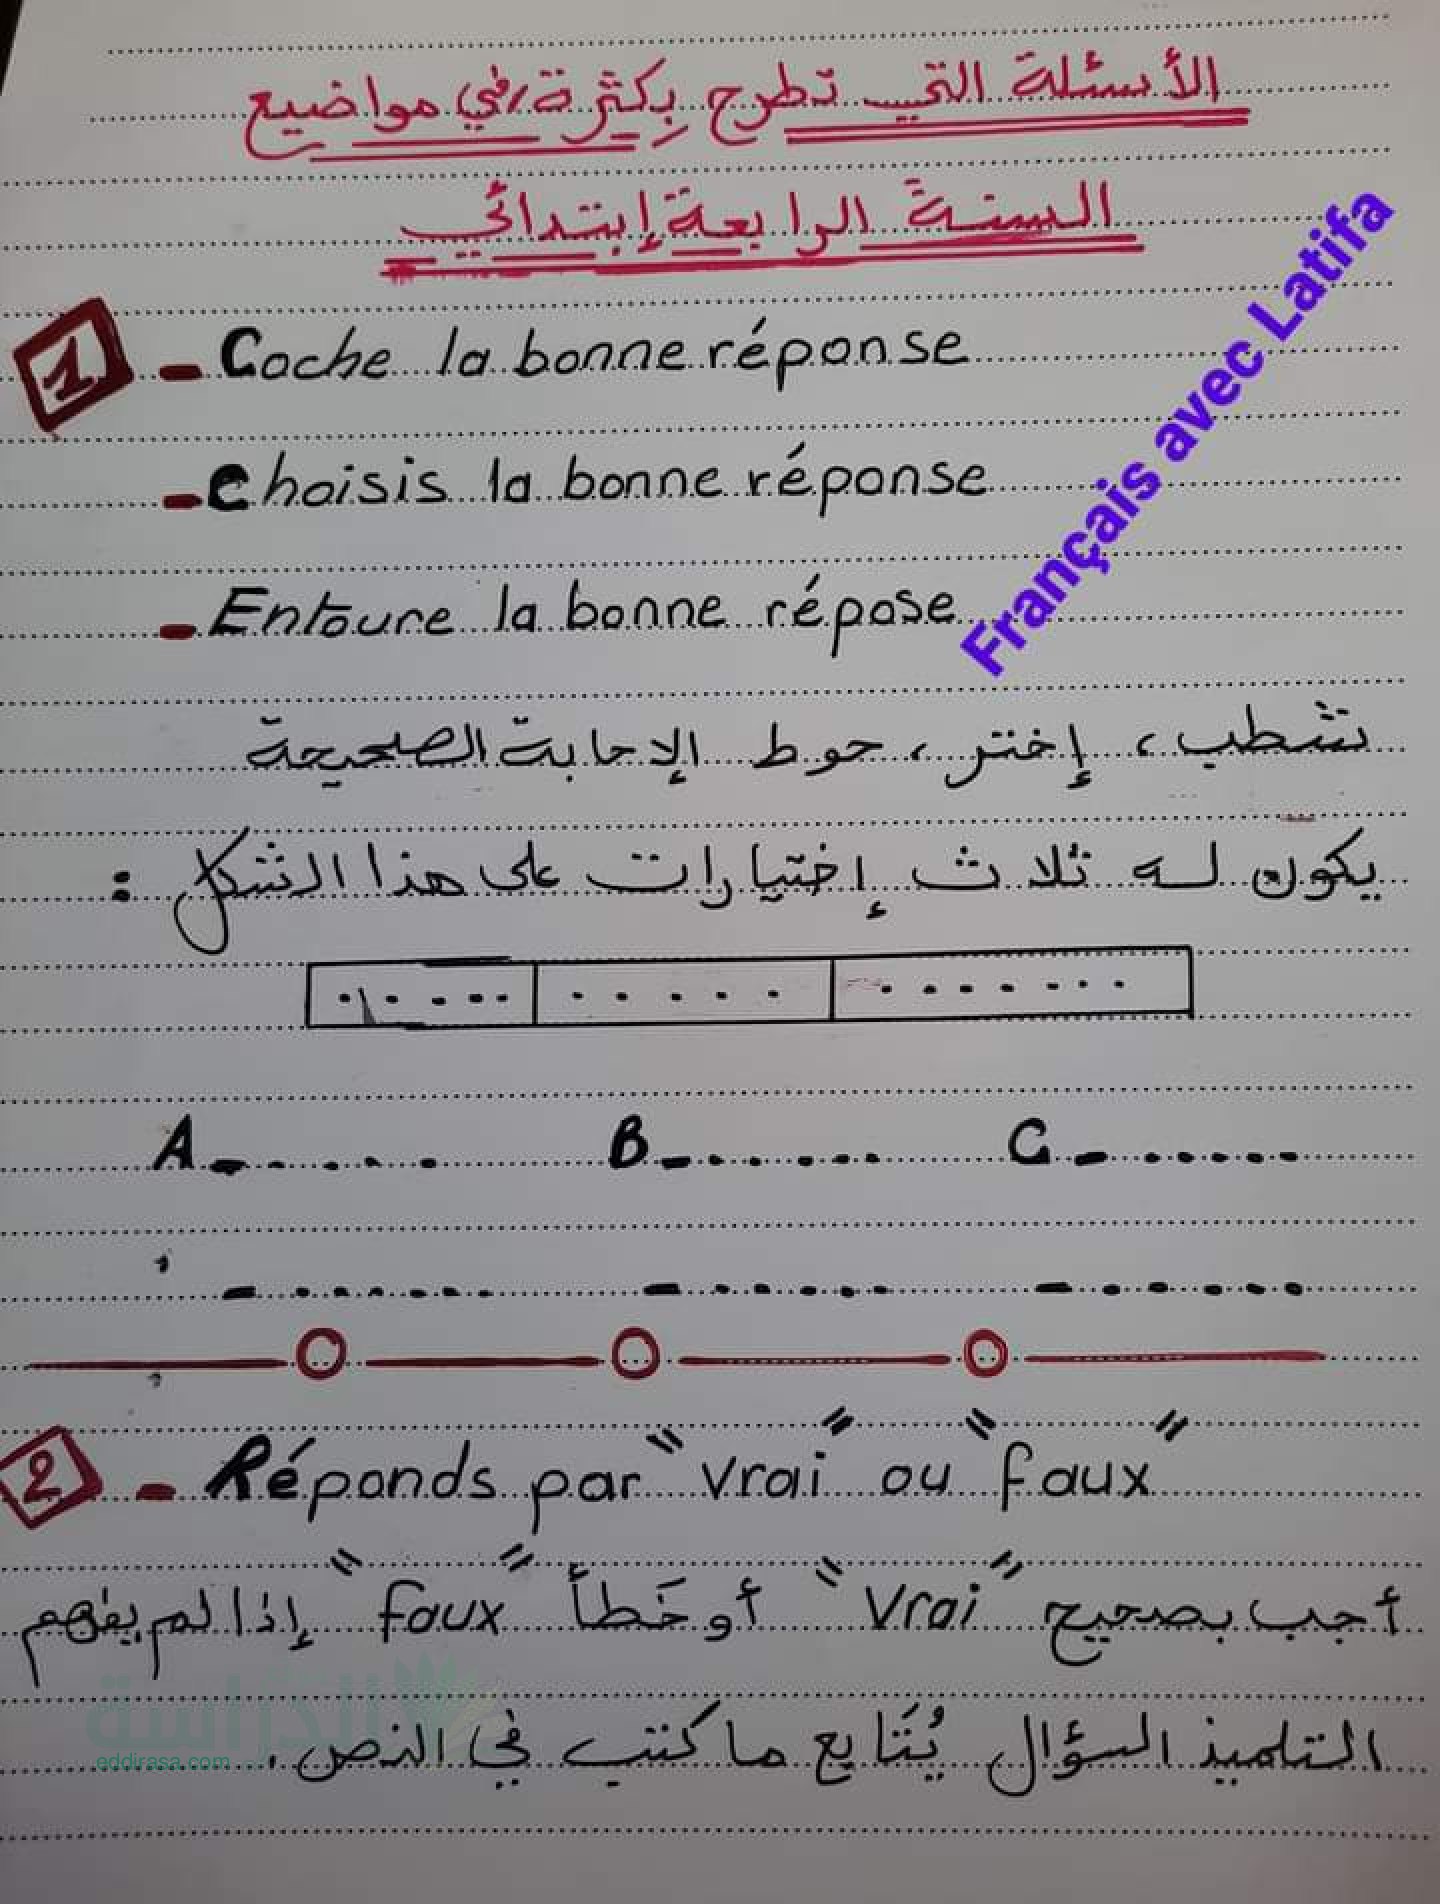 الأسئلة التي تطرح بِكثرة في مواضيع
السنة الرابعة إبتدائي
1 - Coche la bonne réponse
- choisis la bonne réponse
- Entoure la bonne répose
Français avec Latifa
تشطب، إختر، حوط الإجابة الصحيحة
يكون له ثلاث إختيارات على هذا الشكل :
..... ..... .......
A - ..... B - ..... C - .....
- ..... - ..... - .....
2 - Réponds par "vrai" ou "faux"
أجب بصحيح "vrai" أو خَطأ "faux" إذا لم يفهم
التلميذ السؤال يُتَابع ما كتب في النص.
الدراسة
eddirasa.com